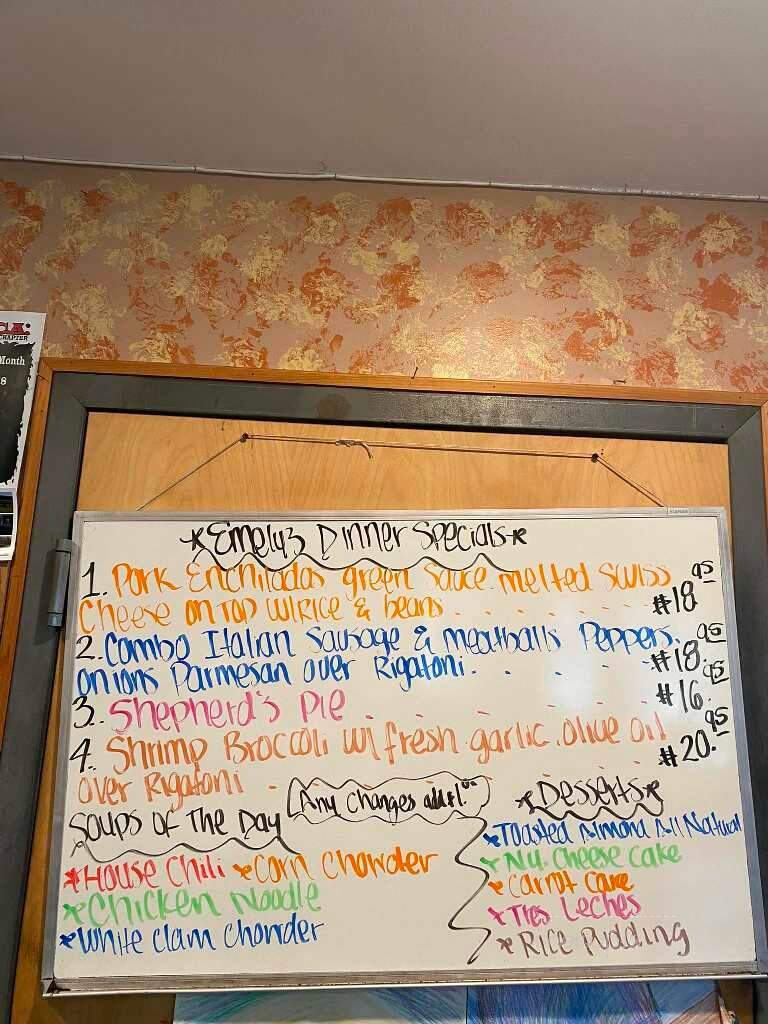 CA:
CHAPTER
Month
8
*Emely's Dinner Specials*
1. Pork Enchiladas green Sauce. melted Swiss
Cheese on top w/Rice & beans . . . . . #18.95
2. Combo Italian Sausage & meatballs Peppers.
onions Parmesan over Rigatoni. . . . #18.95
3. Shepherd's Pie . . . . . #16.95
4. Shrimp Broccoli w/ fresh garlic. olive oil
over Rigatoni . . . . . #20.95
(Any Changes add $1.00)
Soups of The Day
*House Chili *Corn Chowder
*Chicken Noodle
*White Clam Chowder
*Desserts*
*Toasted Almond All Natural
*N.Y. Cheese Cake
*Carrot Cake
*Tres Leches
*Rice Pudding